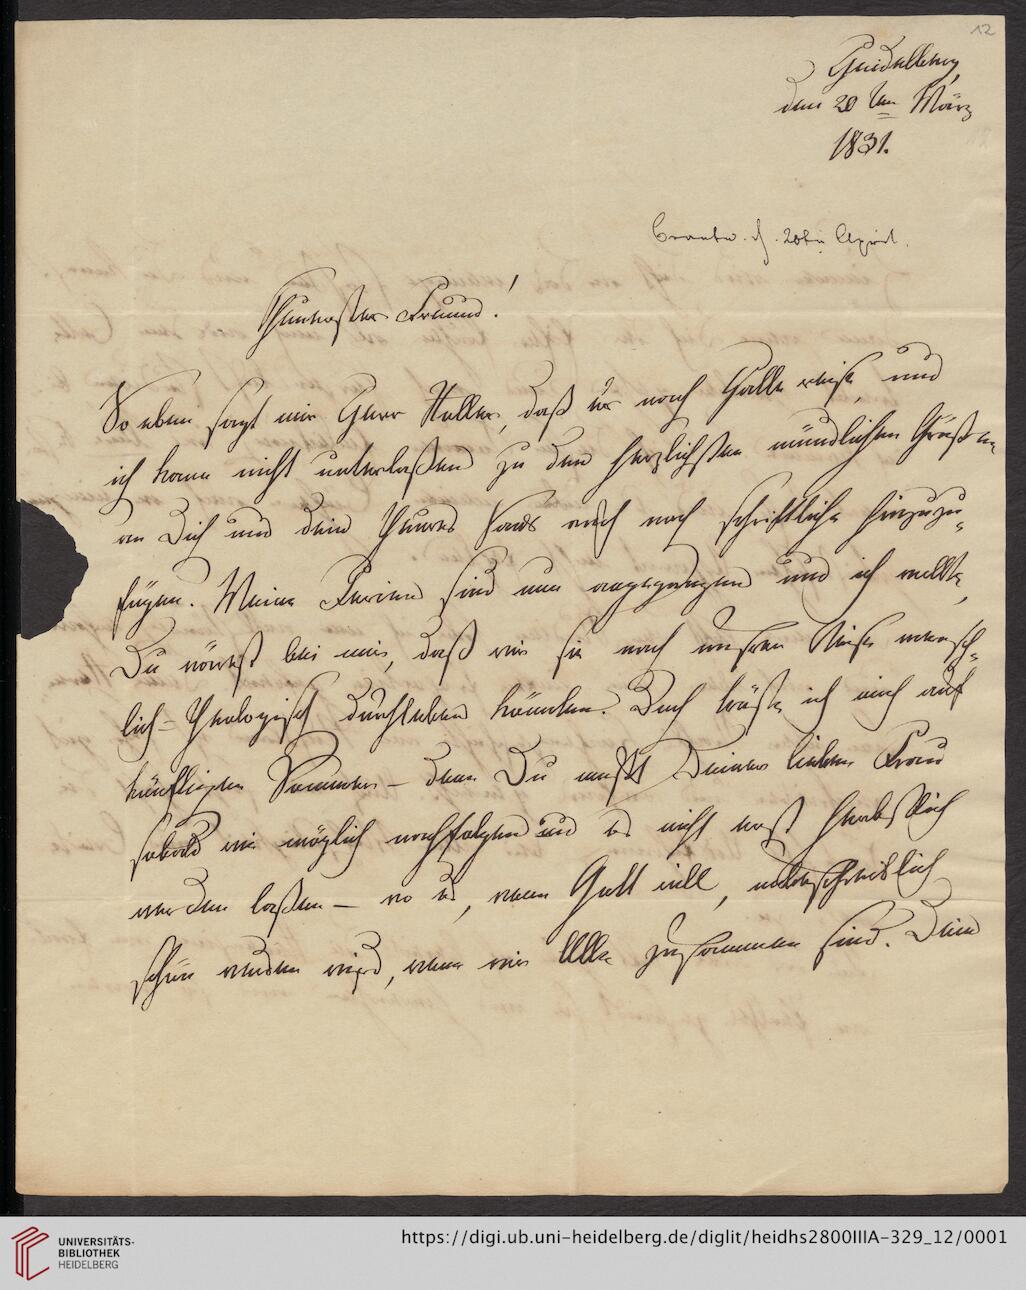 12
Heidelberg,
den 20ten März
1831.
Beantw. d. 20ten April.
Theuerster Freund!
So eben sagt mir Herr Keller, daß er nach Halle reise, und
ich kann nicht unterlaßen zu den herzlichsten mündlichen Grüßen
an Dich und dein theures Haus auch noch schriftliche hinzuzu-
fügen. Meine Ferien sind nun angegangen und ich wollte,
Du wärest bei mir, daß wir sie nach unserer Weise mensch-
lich-theologisch durchleben könnten. Doch tröste ich mich auf
künftigen Sommer – denn Du mußt Deiner lieben Frau
sobald wie möglich nachfolgen und es nicht erst herbstlich
werden laßen – wo es, wenn Gott will, unbeschreiblich
schön werden wird, wenn wir Alle zusammen sind. Dein
UNIVERSITÄTS-
BIBLIOTHEK
HEIDELBERG
https://digi.ub.uni-heidelberg.de/diglit/heidhs2800IIIA-329_12/0001